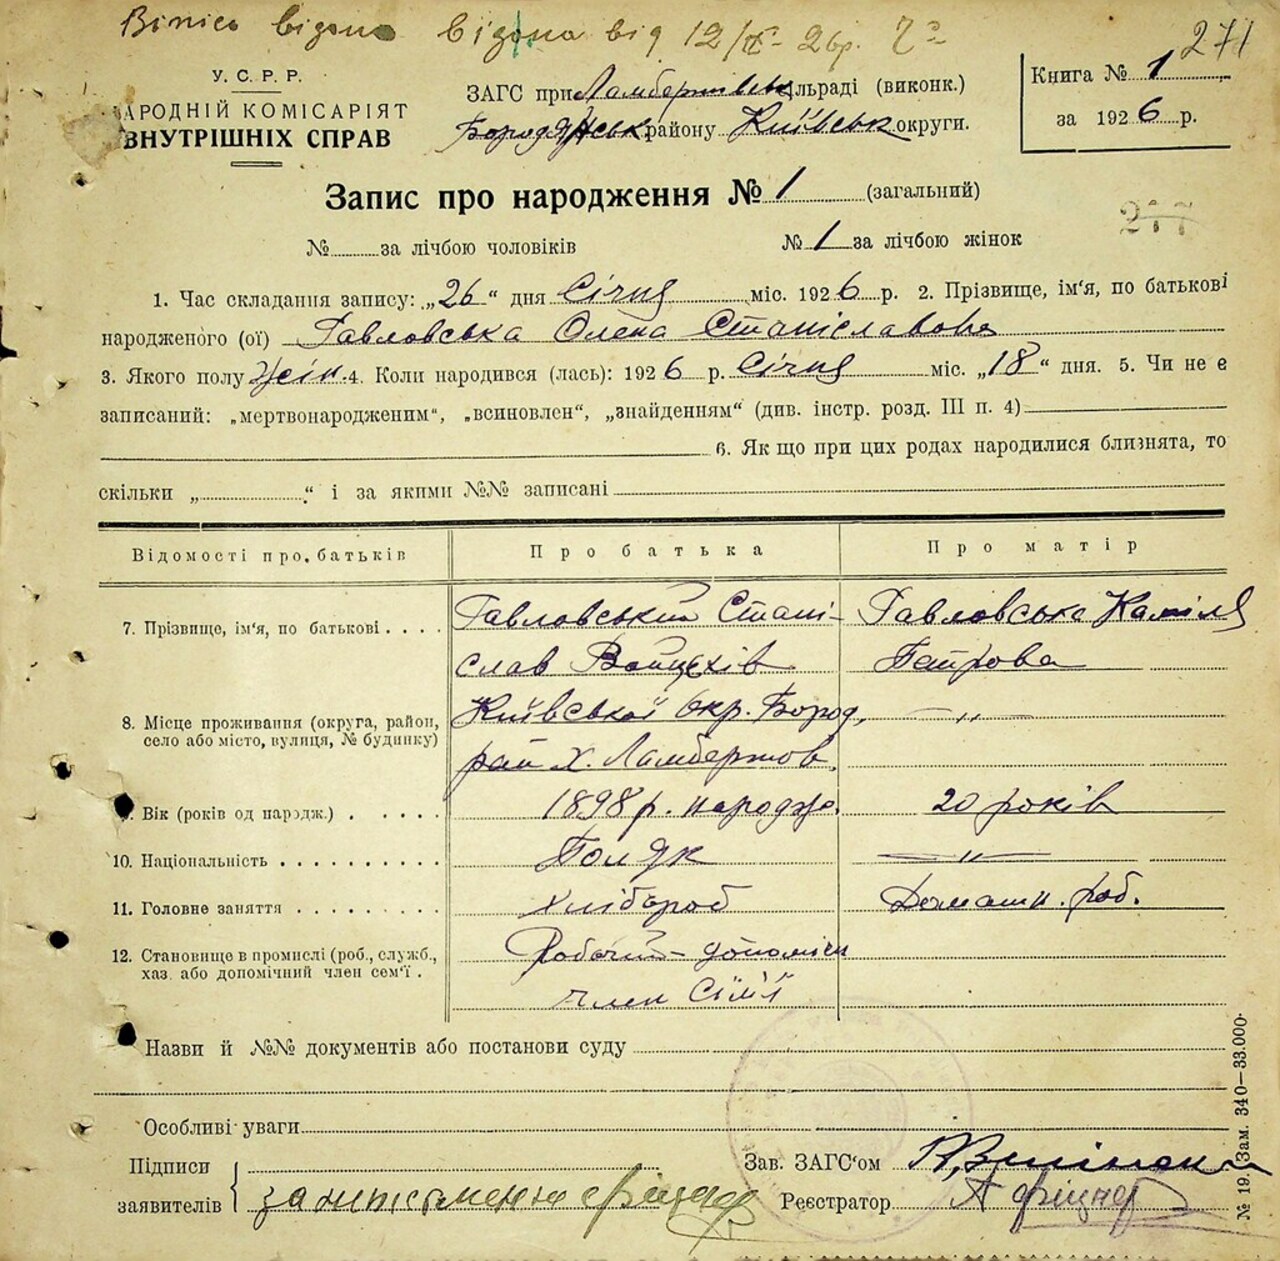 Вiпiсь видана від 12/ІХ-26р.
271
У. С. Р. Р.
НАРОДНІЙ КОМІСАРІЯТ
ВНУТРІШНІХ СПРАВ
ЗАГС при Ламбертівськ сільраді (виконк.)
Бородянськ району Київськ округи.
Книга № 1
за 1926 р.
Запис про народження № 1 (загальний)
277
№ за лічбою чоловіків № 1 за лічбою жінок
1. Час складання запису: „26“ дня Січня міс. 1926 р. 2. Прізвище, ім'я, по батькові
народженого (ої) Павловська Олена Станіславова
3. Якого полу жін. 4. Коли народився (лась): 1926 р. Січня міс. „18“ дня. 5. Чи не є
записаний: „мертвонародженим“, „всиновлен“, „знайденням“ (див. інстр. розд. III п. 4)
6. Як що при цих родах народилися близнята, то
скільки „ “ і за якими №№ записані
Відомості про батьків Про батька Про матір
7. Прізвище, ім'я, по батькові Павловський Стані- Павловська Каміля
слав Войцехів Петрова
8. Місце проживання (округа, район, Київської окр. Бород. — „ —
село або місто, вулиця, № будинку) рай х. Ламбертов.
9. Вік (років од народж.) 1898 р. народж. 20 років
10. Національність Поляк — „ —
11. Головне заняття хлібороб Домашн. роб.
12. Становище в промислі (роб., служб., Робочий - допоміч
хаз. або допомічний член сем'ї. член сім'ї
Назви й №№ документів або постанови суду
Особливі уваги
Підписи
заявителів
Зав. ЗАГС'ом
Реєстратор А Фіцнер
№ 19. Зам. 340—33.000.